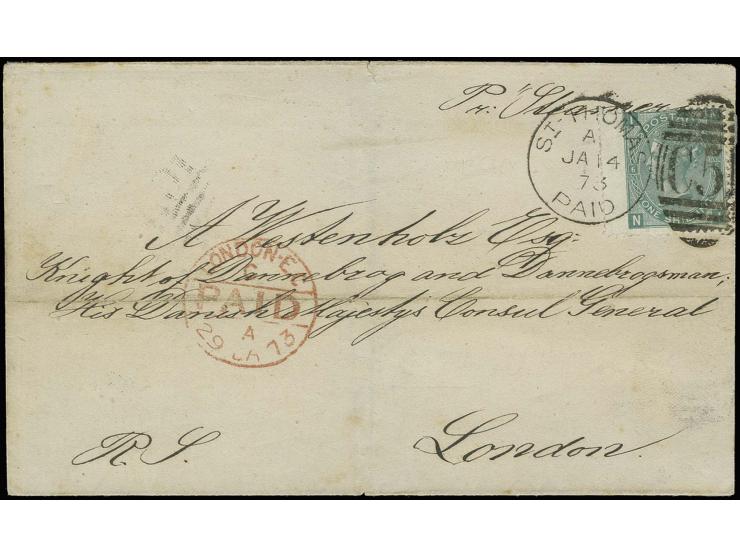 Pr. Steamer
ST. THOMAS
A
JA 14
73
PAID
POSTAGE
C51
6
N
A Westenholz Esq:
Knight of Dannebrog and Dannebrogsman,
His Danish Majestys Consul General
LONDON·E.C
C
PAID
A
29 JA 73
R. S.
London.